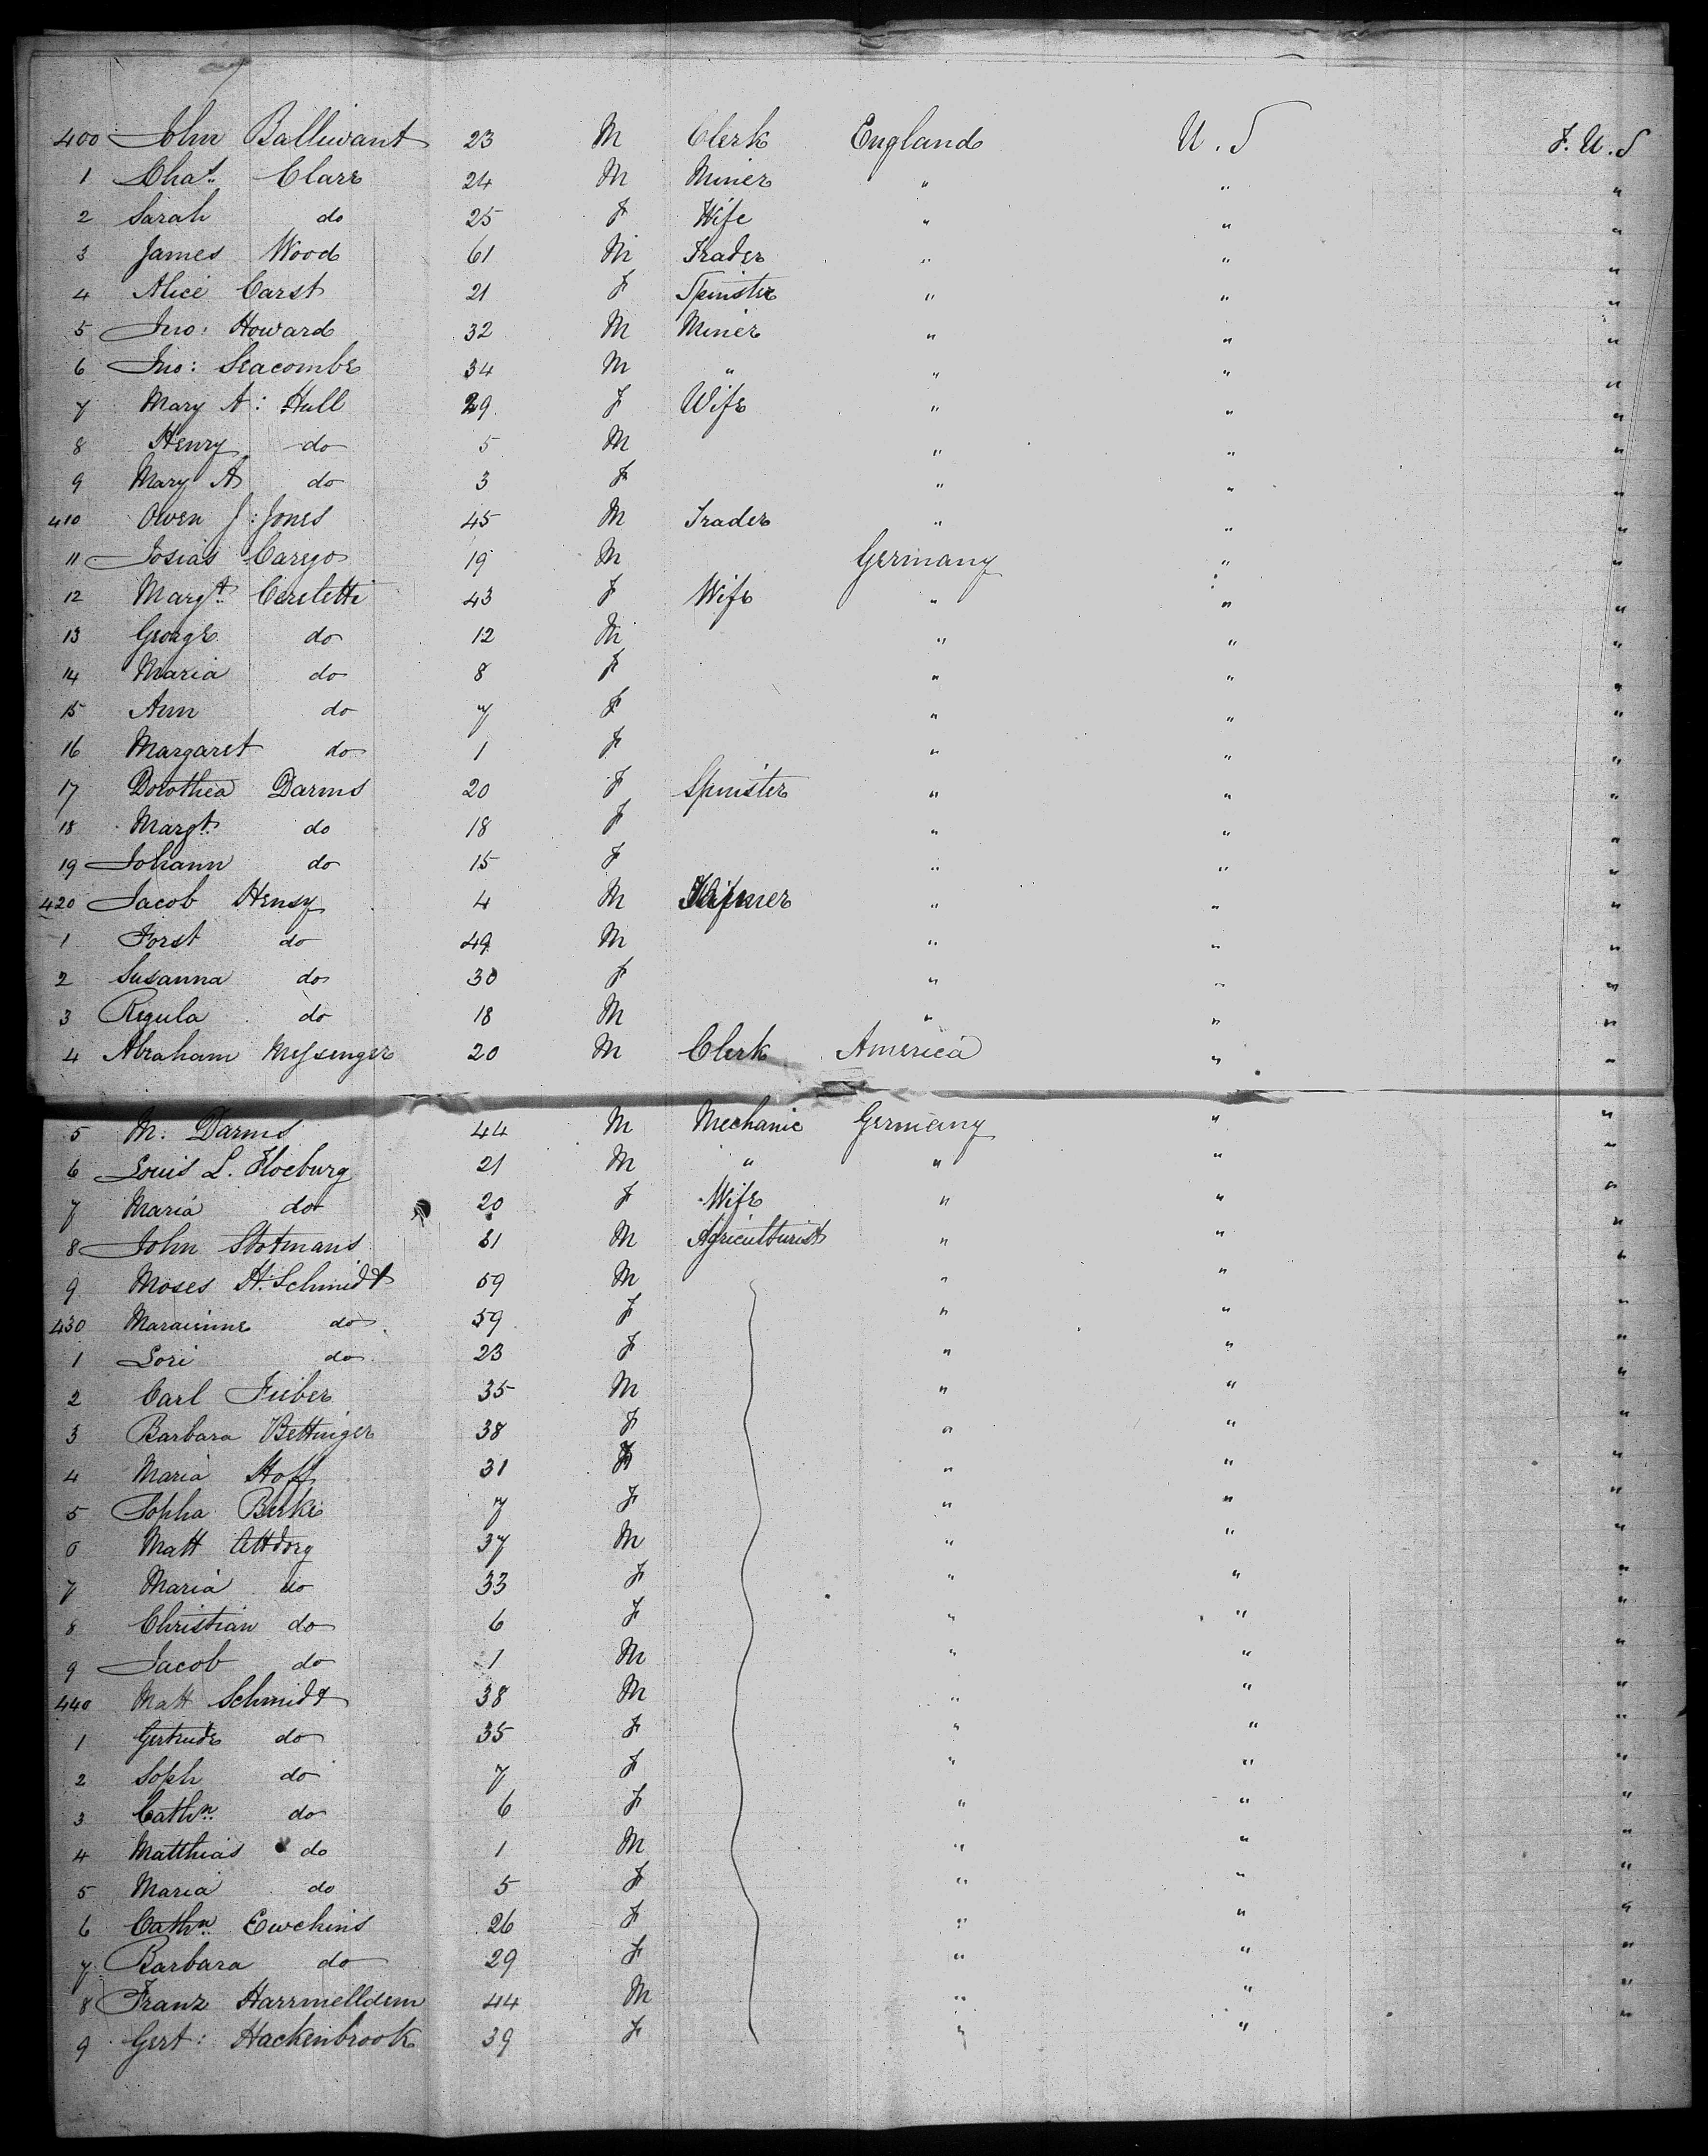 400 John Balliwant 23 M Clerk England U.S F.U.S
1 Chat. Clare 24 M Miner " " "
2 Sarah do 25 F Wife " " "
3 James Wood 61 M Trader " " "
4 Alice Carst 21 F Spinster " " "
5 Jno: Howard 32 M Miner " " "
6 Jno: Seacombe 34 M " " " "
7 Mary A: Hull 29 F Wife " " "
8 Henry do 5 M " " "
9 Mary A do 3 F " " "
410 Owen J: Jones 45 M Trader " " "
11 Josias Carego 19 M Germany " "
12 Margt. Cereletti 43 F Wife " " "
13 George do 12 M " " "
14 Maria do 8 F " " "
15 Ann do 7 F " " "
16 Margaret do 1 F " " "
17 Dorothea Darms 20 F Spinster " " "
18 Margt. do 18 F " " "
19 Johann do 15 F " " "
420 Jacob Hensy 4 M " " "
1 Forst do 49 M " " "
2 Susanna do 30 F " " "
3 Regula do 18 M " " "
4 Abraham Messenger 20 M Clerk America " "
5 M: Darms 44 M Mechanic Germany " "
6 Louis L. Hoeburg 21 M " " " "
7 Maria do 20 F Wife " " "
8 John Stotmans 31 M Agriculturist " " "
9 Moses H. Schmidt 59 M " " "
430 Maraienne do 59 F " " "
1 Lori do 23 F " " "
2 Carl Fieber 35 M " " "
3 Barbara Bettinger 38 F " " "
4 Maria Hoff 31 F " " "
5 Sopha Berke 7 F " " "
6 Matt Attdorg 37 M " " "
7 Maria do 33 F " " "
8 Christian do 6 F " " "
9 Jacob do 1 M " " "
440 Matt Schmidt 38 M " " "
1 Gertrude do 35 F " " "
2 Soph do 7 F " " "
3 Cathn. do 6 F " " "
4 Matthias do 1 M " " "
5 Maria do 5 F " " "
6 Cathn. Ewchins 26 F " " "
7 Barbara do 29 F " " "
8 Franz Harrmelldem 44 M " " "
9 Gert: Hackenbrook 39 F " "